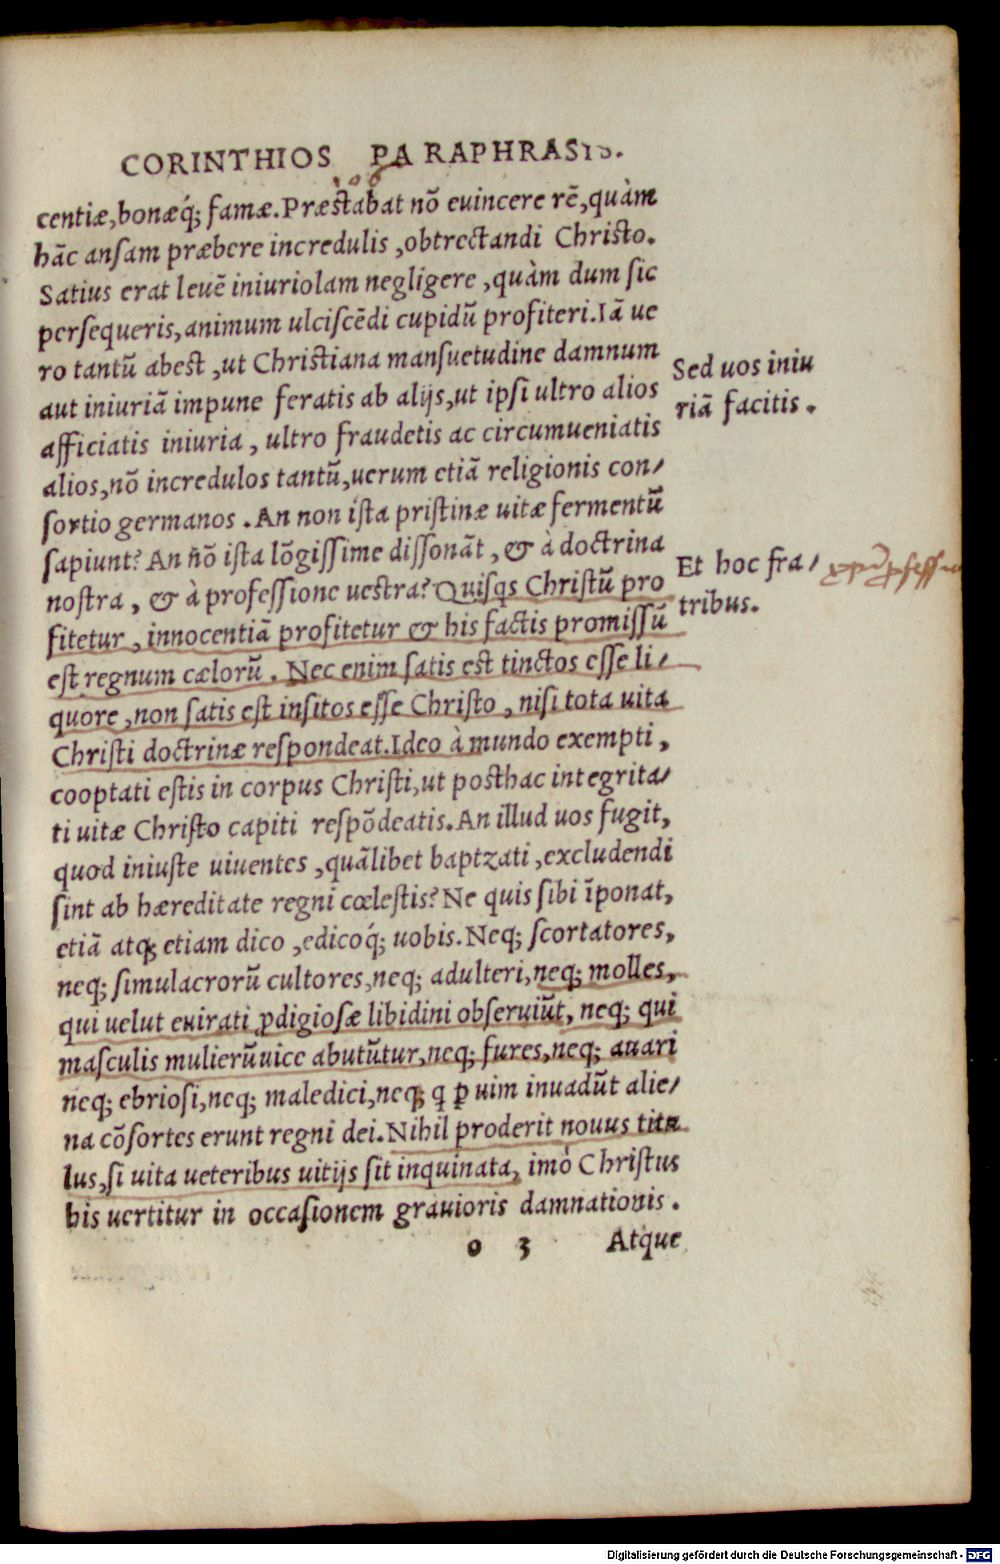 CORINTHIOS PARAPHRASIS.
centiæ, bonæq́; famæ. Præstabat nõ euincere rẽ, quàm
hãc ansam præbere incredulis, obtrectandi Christo.
Satius erat leuẽ iniuriolam negligere, quàm dum sic
persequeris, animum ulciscẽdi cupidũ profiteri. Iã ue
ro tantũ abest, ut Christiana mansuetudine damnum
aut iniuriã impune feratis ab alijs, ut ipsi ultro alios
afficiatis iniuria, ultro fraudetis ac circumueniatis
alios, nõ incredulos tantũ, uerum etiã religionis con/
sortio germanos. An non ista pristinæ uitæ fermentũ
sapiunt? An ñõ ista lõgissime dissonãt, & à doctrina
nostra, & à professione uestra? Quisqs Christũ pro
fitetur, innocentiã profitetur & his factis promissũ
est regnum cælorũ. Nec enim satis est tinctos esse li/
quore, non satis est insitos esse Christo, nisi tota uita
Christi doctrinæ respondeat. Ideo à mundo exempti,
cooptati estis in corpus Christi, ut posthac integrita/
ti uitæ Christo capiti respõdeatis. An illud uos fugit,
quod iniuste uiuentes, quãlibet baptzati, excludendi
sint ab hæreditate regni cœlestis? Ne quis sibi ĩponat,
etiã atq; etiam dico, edicoq́; uobis. Neq; scortatores,
neq; simulacrorũ cultores, neq; adulteri, neq; molles,
qui uelut euirati ꝓdigiosæ libidini obseruiũt, neq; qui
masculis mulierũ uice abutũtur, neq; fures, neq; auari
neq; ebriosi, neq; maledici, neq; q ꝑ uim inuadũt alie/
na cõsortes erunt regni dei. Nihil proderit nouus titu
lus, si uita ueteribus uitijs sit inquinata, imò Christus
his uertitur in occasionem grauioris damnationis.
o 3 Atque
Sed uos iniu
riã facitis.
Et hoc fra/
tribus.
Digitalisierung gefördert durch die Deutsche Forschungsgemeinschaft - DFG